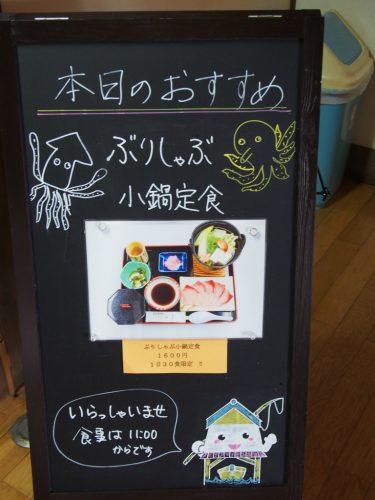 本日のおすすめ
ぶりしゃぶ
小鍋定食
ぶりしゃぶ小鍋定食
1600円
1日30食限定 !!
いらっしゃいませ
食事は 11:00
からです